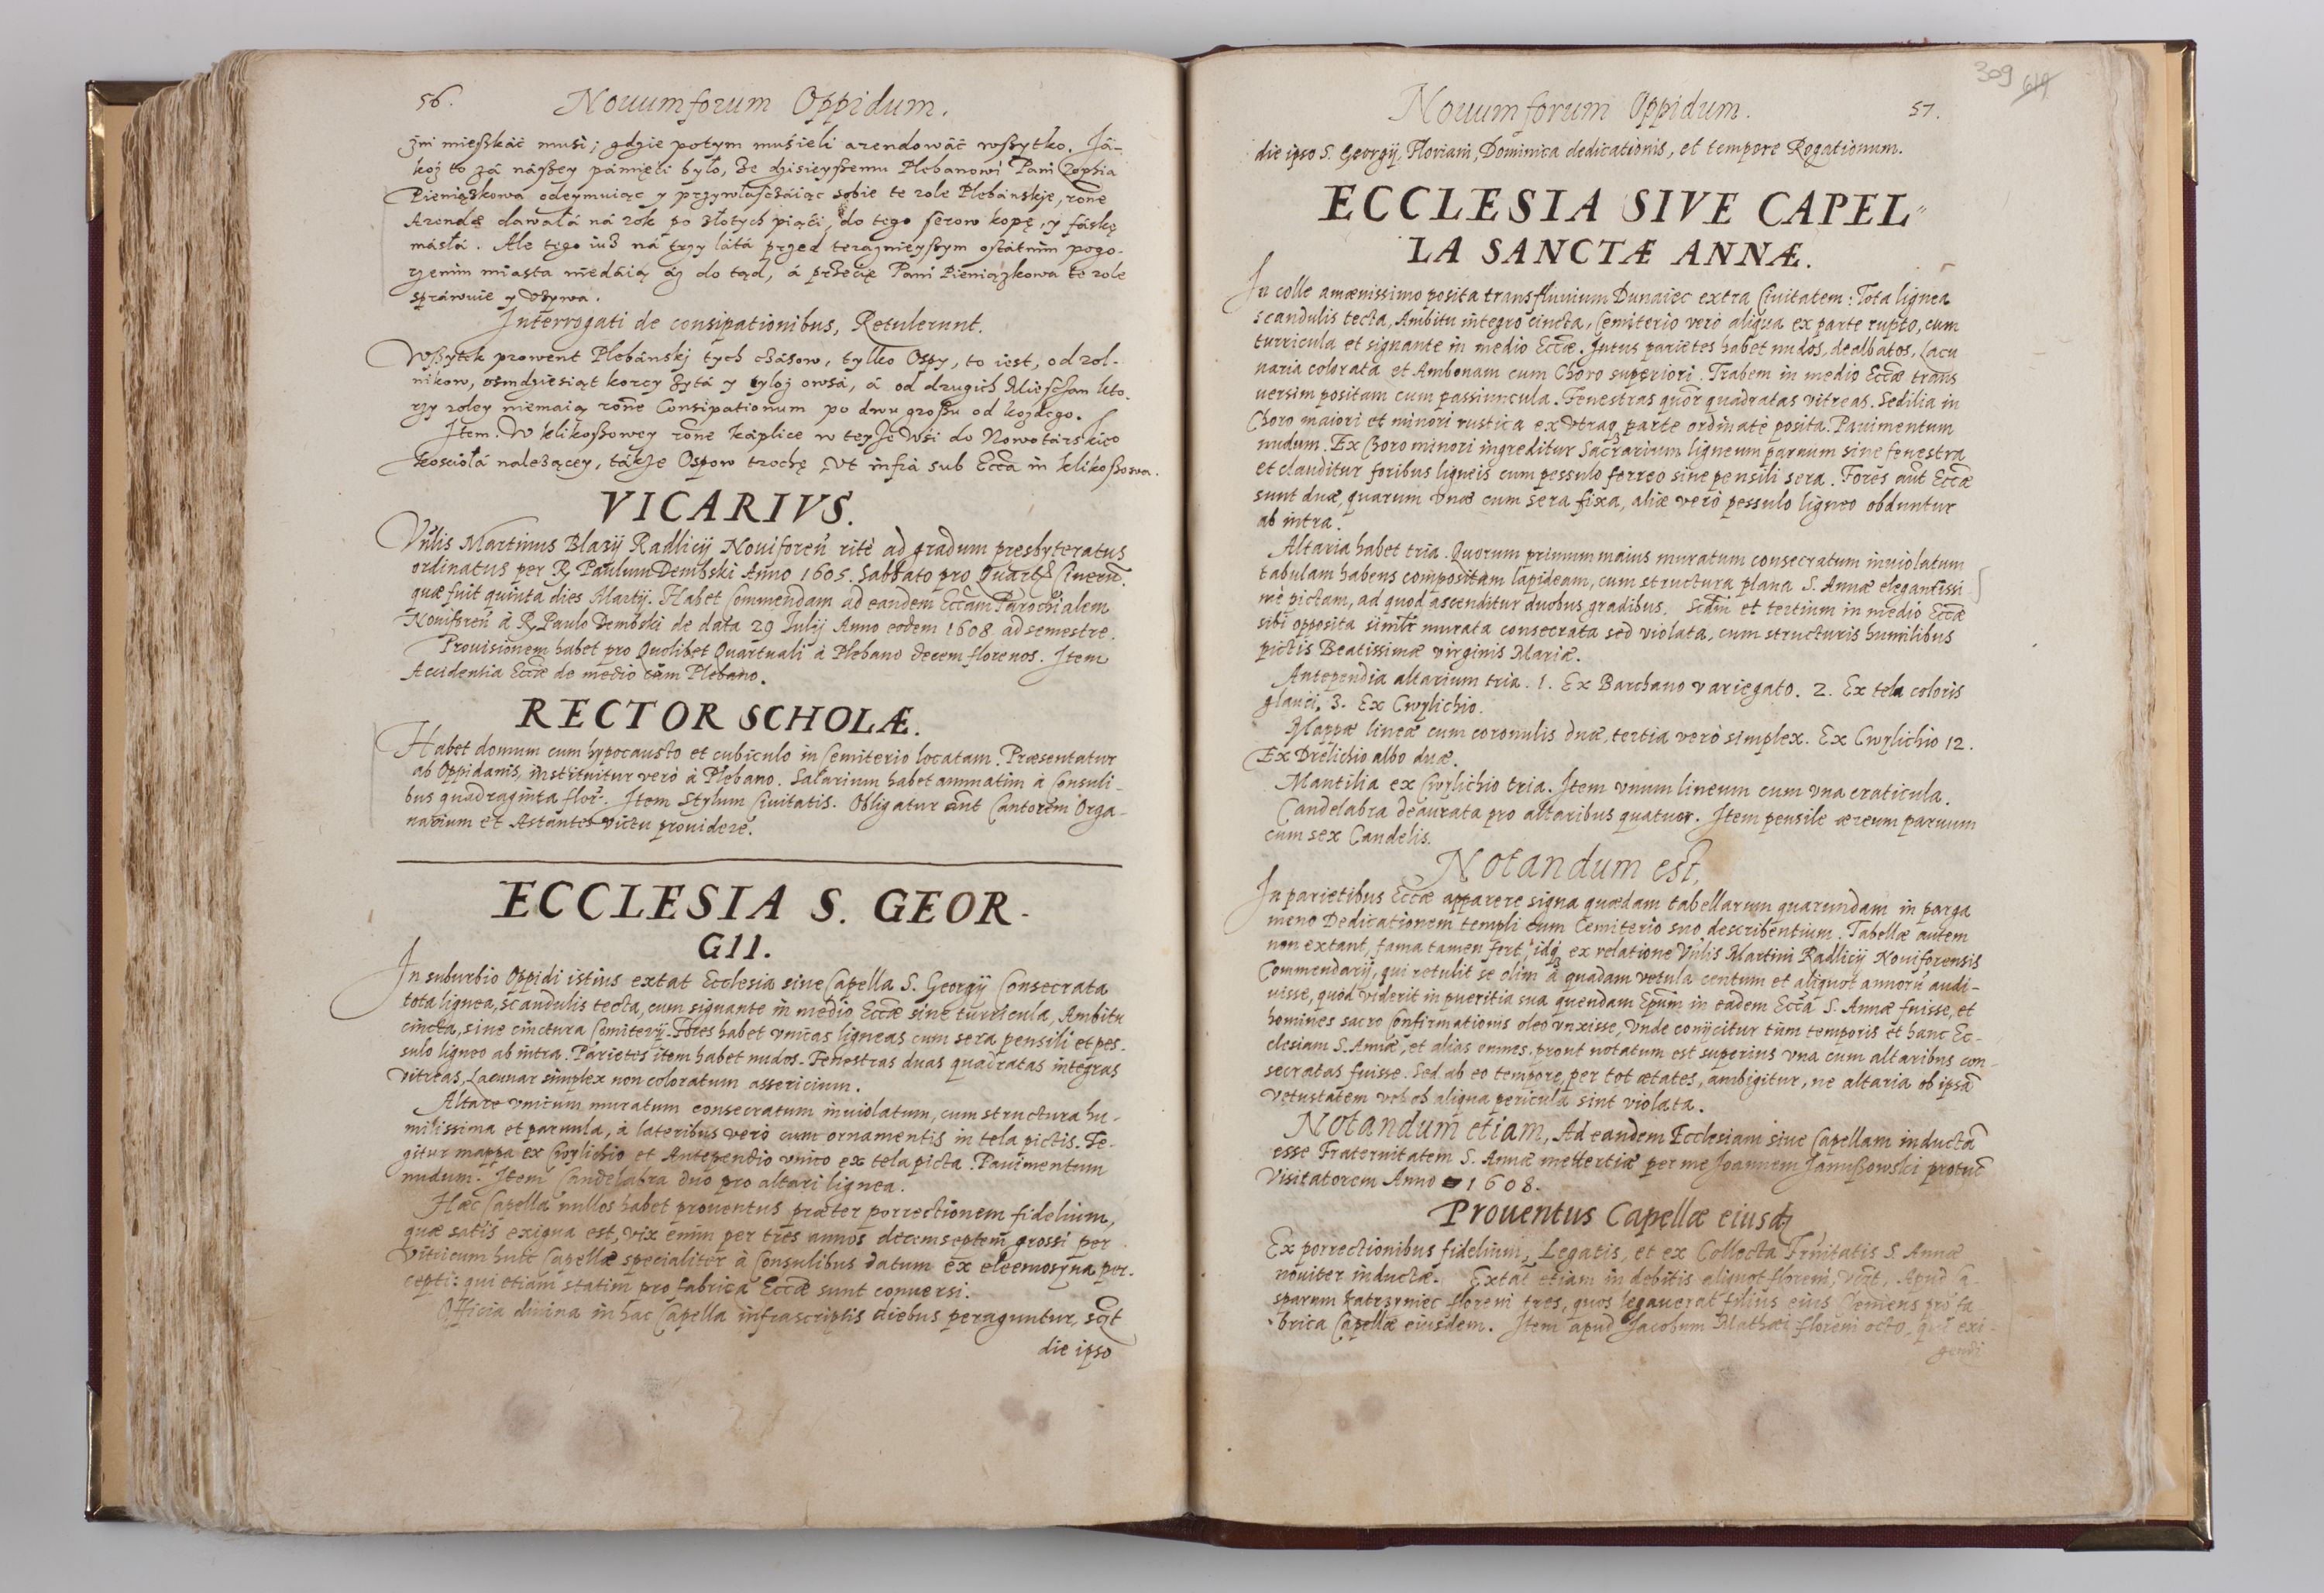 56. Nouumforum Oppidum.
żni mießkáć musi; gdzie potym muśieli arendowáć wßytko. Já-
koż to zá náßey pámięći było, że dzisieyßemu Plebanowi Pani Zophia
Pieniążkowa odeymuiąc y przywłaßczáiąc sobie te role Plebánskie, rone
Arendæ dawałá ná rok po złotych piąći, do tego serow kopę, y fáskę
másłá. Ale tego iuż ná trzy látá przed teraznieyßym ostátnim pogo-
rzenim miasta niedáią áż do tąd, á przećię Pani Pieniążkowa te role
spráwuie y vżywa.
Interrogati de consipationibus, Retulerunt.
Wßytek prowent Plebánski tych czásow, tylko Ospy, to iest, od rol-
nikow, osmdziesiąt korcy żytá y tyloż owsá, á od drugich Mieszchan kto-
rzy roley niemaią rone Consipationum po dwu großu od każdego.
Item. W Klikoßowey rone káplice w teyże wśi do Nowotárskiego
kościołá należącey, tákże Ospow trochę, Vt infra sub Ecca in Klikoßowa.
VICARIVS.
Vnlis Martinus Blasij Radlicij Nouiforen ritè ad gradum presbyteratus
ordinatus per R. Paulum Dembski Anno 1605. Sabbato pro Quartæ Cinerum.
quæ fuit quinta dies Martij. Habet Commendam ad eandem Eccam Parochialem
Nouiforen à R. Paulo Dembski de data 29 Iulij Anno eodem 1608 ad semestre.
Prouisionem habet pro Quolibet Quartuali à Plebano decem florenos. Item
Accidentia Eccæ de medio cum Plebano.
RECTOR SCHOLÆ.
Habet domum cum hypocausto et cubiculo in Cemiterio locatam. Præsentatur
ab Oppidanis, instituitur verò à Plebano. Salarium habet annuatim à Consuli-
bus quadraginta flor. Item Stylum Ciuitatis. Obligatur aut Cantorem Orga-
narium et Astantes victu prouidere.
ECCLESIA S. GEOR-
GII.
In suburbio Oppidi istius extat Ecclesia siue Capella S. Georgij Consecrata
tota lignea, scandulis tecta, cum signante in medio Eccæ sine turricula, Ambitu
cincta, sine cinctura Cemiterij. Fores habet vnicas ligneas cum sera pensili et pes-
sulo ligneo ab intra. Parietes item habet nudos. Fenestras duas quadratas integras
vitreas, Lacunar simplex non coloratum assericium.
Altare vnicum muratum consecratum inuiolatum, cum structura hu-
milissima et paruula, à lateribus verò cum ornamentis in tela pictis. Te-
gitur mappa ex Cwylichio et Antependio vnico ex tela picta. Pauimentum
nudum. Item Candelabra duo pro altari lignea.
Hæc Capella nullos habet prouentus præter porrectionem fidelium,
quæ satis exigua est, vix enim per tres annos decemseptem grossi per
Vitricum huic Capellæ specialiter à Consulibus datum ex eleemosyna per-
cepti: qui etiam statim pro fabrica Eccæ sunt conuersi.
Officia diuina in hac Capella infrascriptis diebus peraguntur, scilt
die ipso
309
Nouumforum Oppidum. 57.
die ipso S. Georgij, Floriani, Dominica dedicationis, et tempore Rogationum.
ECCLESIA SIVE CAPEL
LA SANCTÆ ANNÆ.
In colle amænissimo posita trans fluuium Dunaiec extra Ciuitatem: Tota lignea
scandulis tecta, Ambitu integro cincta, Cemiterio verò aliqua ex parte rupto, cum
turricula et signante in medio Eccæ. Intus parietes habet nudos, dealbatos, Lacu
naria colorata et Ambonam cum Choro superiori. Trabem in medio Eccæ trans
uersim positam cum passiuncula. Fenestras quor quadratas vitreas. Sedilia in
Choro maiori et minori rustica ex vtraq parte ordinatè posita. Pauimentum
nudum. Ex Choro minori ingreditur Sacrarium ligneum paruum sine fenestra
et clauditur foribus ligneis cum pessulo ferreo sine pensili sera. Fores aut Eccæ
sunt duæ, quarum vnæ cum sera fixa, aliæ verò pessulo ligneo obduntur
ab intra.
Altaria habet tria. Quorum primum maius muratum consecratum inuiolatum
tabulam habens compositam lapideam, cum structura plana S. Annæ elegantissi
mè pictam, ad quod ascenditur duobus gradibus. Scdm et tertium in medio Eccæ
sibi opposita similr murata consecrata sed violata, cum structuris humilibus
pictis Beatissimæ virginis Mariæ.
Antependia altarium tria. 1. Ex Barchano variegato. 2. Ex tela coloris
glauci, 3. Ex Cwylichio.
Mappæ lineæ cum coronulis duæ, tertia verò simplex. Ex Cwylichio 12.
Ex Drelichio albo duæ.
Mantilia ex Cwylichio tria. Item vnum lineum cum vna craticula.
Candelabra deaurata pro altaribus quatuor. Item pensile æreum paruum
cum sex Candelis.
Notandum est,
In parietibus Eccæ apparere signa quædam tabellarum quarundam in parga
meno Dedicationem templi cum Cemiterio suo describentium. Tabellæ autem
non extant, fama tamen fert, idq ex relatione Vnlis Martini Radlicij Nouiforensis
Commendarij, qui retulit se olim à quadam vetula centum et aliquot annorum audi-
uisse, quòd viderit in pueritia sua quendam Epum in eadem Ecca S. Annæ fuisse, et
homines sacro Confirmationis oleo vnxisse, Vnde conijcitur tùm temporis et hanc Ec-
clesiam S. Annæ, et alias omnes, prout notatum est superius vna cum altaribus con-
secratas fuisse. Sed ab eo tempore, per tot ætates, ambigitur, ne altaria ob ipsam
vetustatem vel ob aliqua pericula sint violata.
Notandum etiam, Ad eandem Ecclesiam siue Capellam inductam
esse Fraternitatem S. Annæ mettertiæ per me Joannem Januszowski protunc
Visitatorem Anno 1608.
Prouentus Capellæ eiusd
Ex porrectionibus fidelium, Legatis, et ex Collecta Frnitatis S. Annæ
nouiter inductæ. Extat etiam in debitis aliquot floreni, vdlt, Apud Ca-
sparum Katrzyniec floreni tres, quos legauerat filius eius Clemens pro fa
brica Capellæ eiusdem. Item apud Jacobum Mathæi floreni octo, qui exi-
gendi